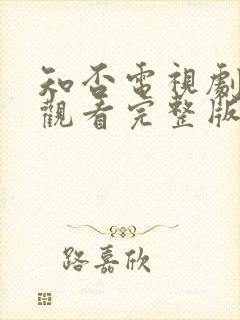 知否電視劇
觀看完整版
路嘉欣